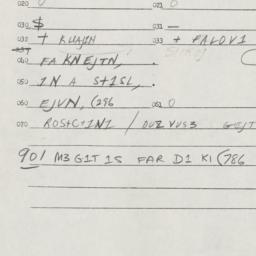 020 0 021 0
030 $ 031 —
032 + KUAJIN 033 + PALOV1
040 FA KNEJTN, .
050 IN A S+1SL, .
060 EJVN, (286 061 0
070 ROS+C+1N1 / DUZ VUS3
901 M3 G1T 1S FAR D1 K1 (786